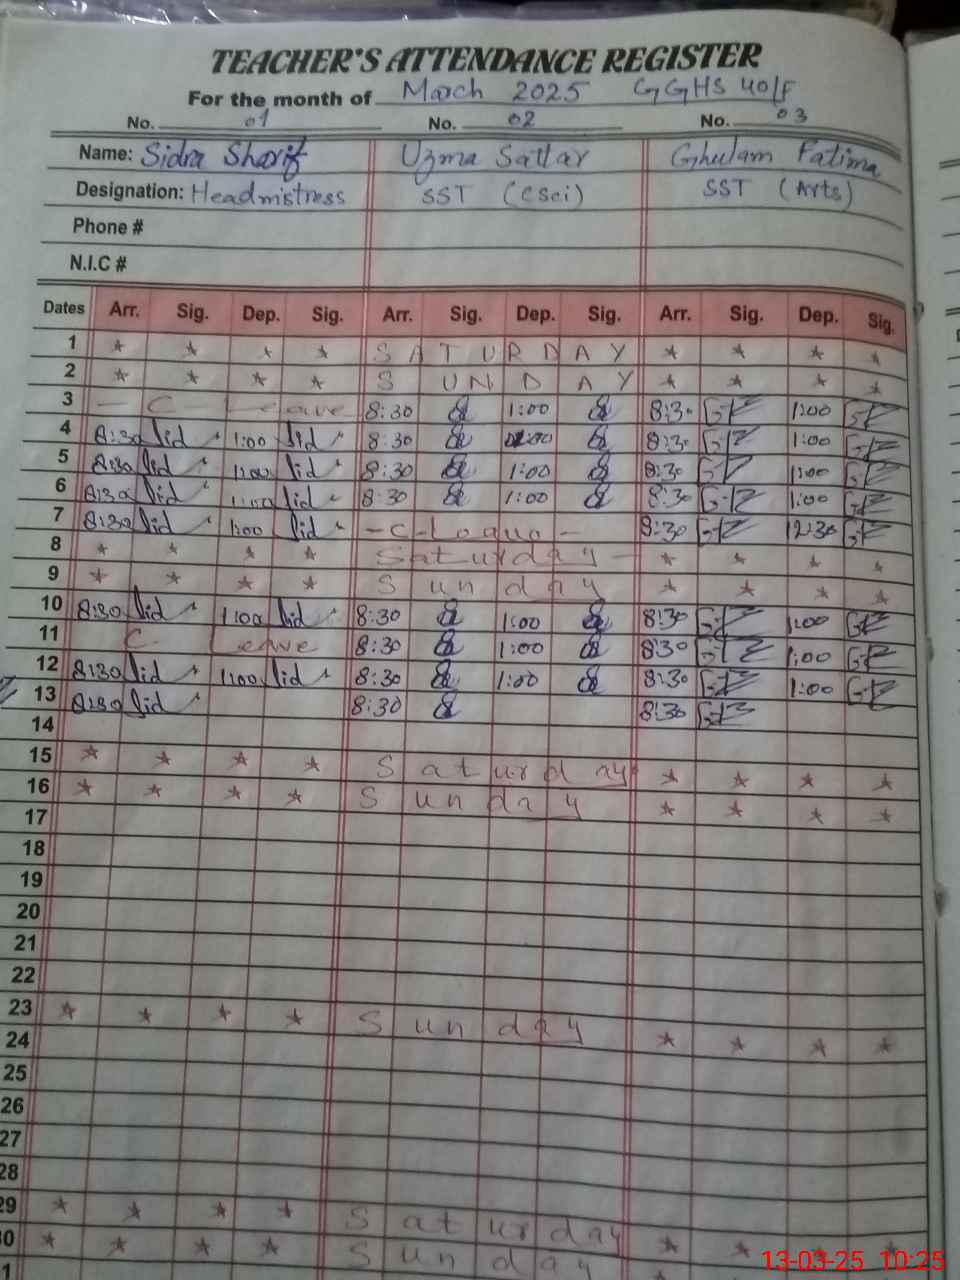 TEACHER'S ATTENDANCE REGISTER
For the month of March 2025 GGHS 40/F
No. 01 No. 02 No. 03
Name: Sidra Sharif Uzma Sattar Ghulam Fatima
Designation: Headmistress SST (Csci) SST (Arts)
Phone #
N.I.C #
Dates Arr. Sig. Dep. Sig. Arr. Sig. Dep. Sig. Arr. Sig. Dep. Sig.
1 * * * * SATURDAY * * * *
2 * * * * SUNDAY * * * *
3 - C - Leave 8:30 1:00 8:30 GF 1:00 GF
4 8:30 Sid 1:00 Sid 8:30 1:00 8:30 GF 1:00 GF
5 8:30 Sid 1:00 Sid 8:30 1:00 8:30 GF 1:00 GF
6 8:30 Sid 1:00 Sid 8:30 1:00 8:30 GF 1:00 GF
7 8:30 Sid 1:00 Sid - C - 8:30 GF 12:30 GF
8 * * * * Saturday - * * * *
9 * * * * Sunday * * * *
10 8:30 Sid 1:00 Sid 8:30 1:00 8:30 GF 1:00 GF
11 C - Leave 8:30 1:00 8:30 GF 1:00 GF
12 8:30 Sid 1:00 Sid 8:30 1:00 8:30 GF 1:00 GF
13 8:30 Sid 8:30 8:30 GF
14
15 * * * * Saturday * * * *
16 * * * * Sunday * * * *
17
18
19
20
21
22
23 * * * * Sunday * * * *
24
25
26
27
28
29 * * * * Saturday * * * *
30 * * * * Sunday
13-03-25 10:25